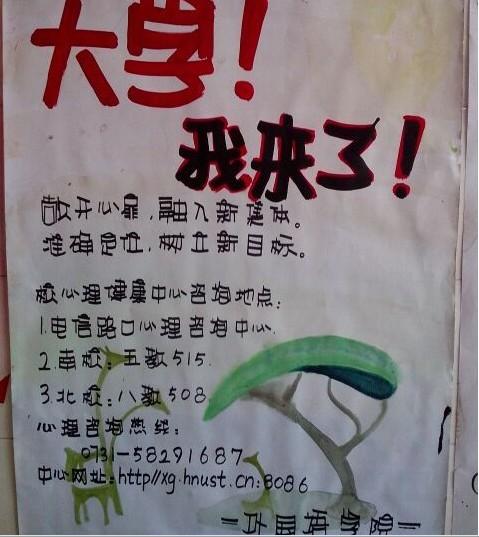 大学！
我来了！
敞开心扉，融入新集体。
准确定位，树立新目标。
校心理健康中心咨询地点：
1.电信路口心理咨询中心.
2.南校：五教515.
3.北校：八教508
心理咨询热线：
0731-58291687
中心网址：http//xg.hnust.cn:8086
一外国语学院一